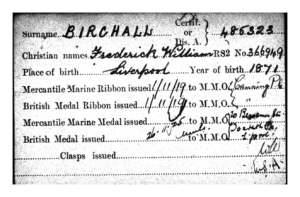 Surname BIRCHALL Certif. or Dis. A. 486323
Christian names Frederick William RS2 No 366949
Place of birth Liverpool Year of birth 1871
Mercantile Marine Ribbon issued 1/11/19 to M.M.O. Canning Pl
British Medal Ribbon issued 1/11/19 to M.M.O. "
Mercantile Marine Medal issued to M.M.O.
British Medal issued to M.M.O.
Clasps issued